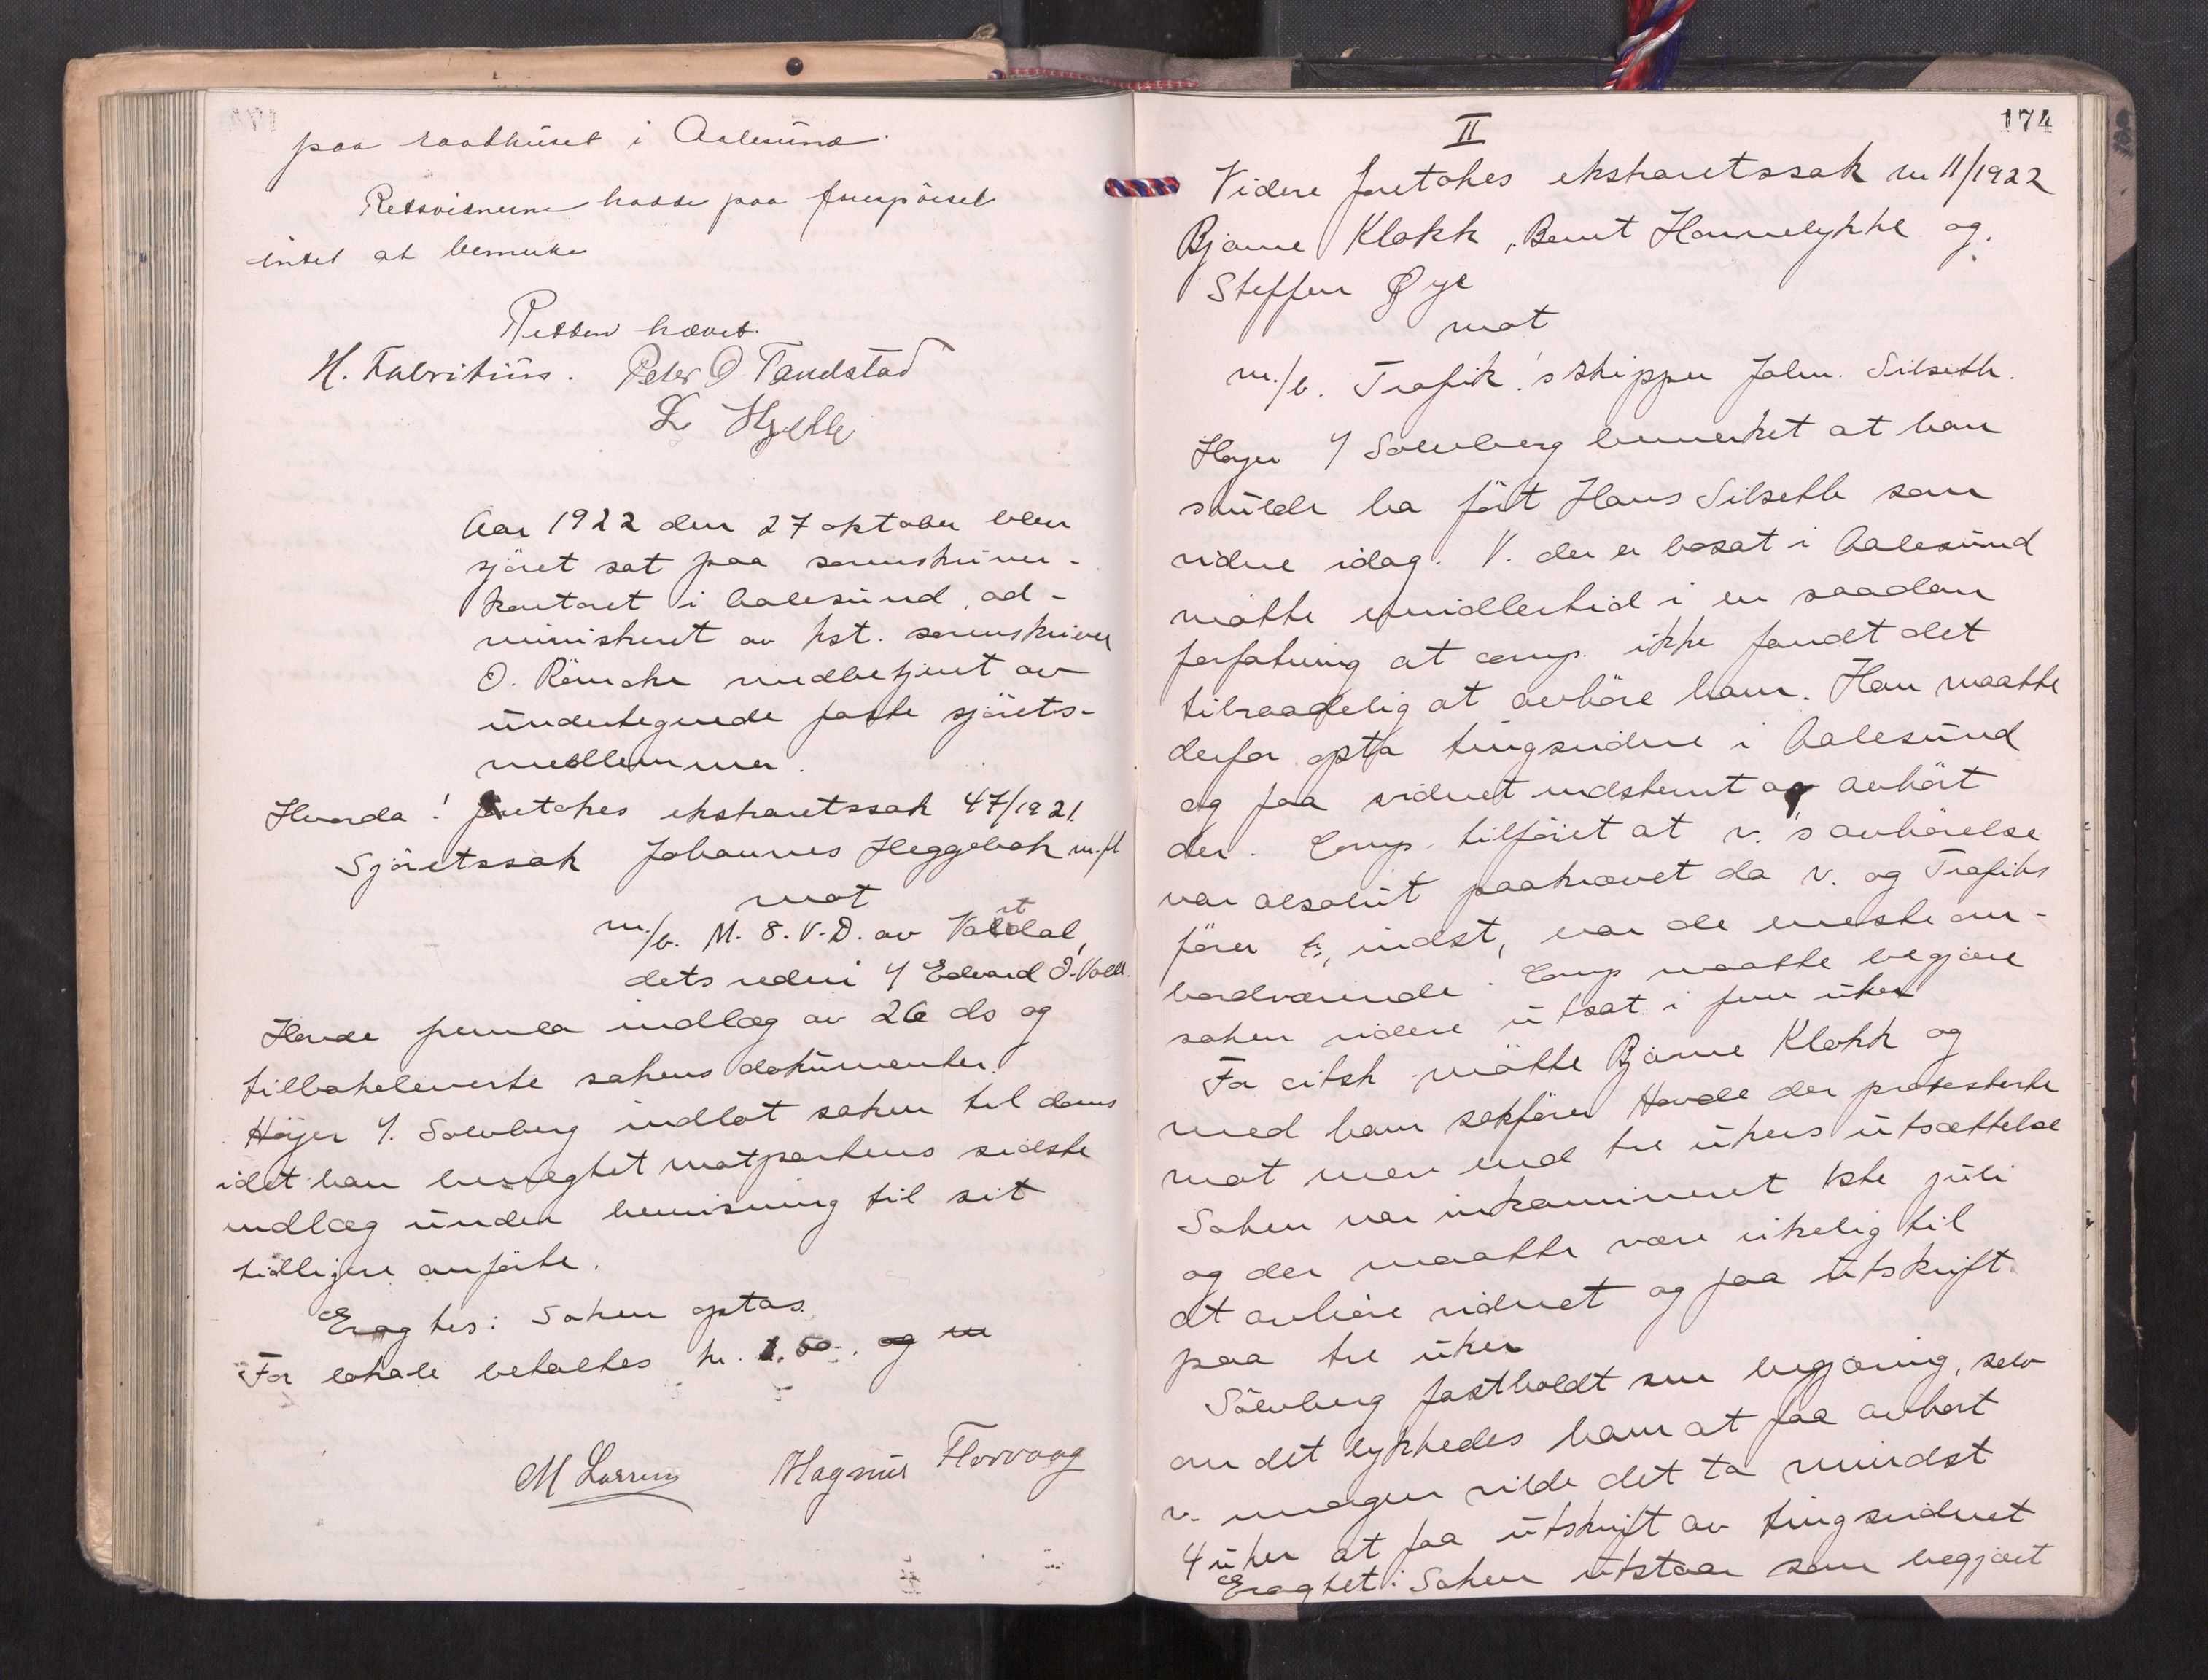 paa raadhuset i Aalesund.
Retsvidnerne hadde paa forespørsel
intet at bemerke
Retten hævet.
H. Fabritius. Peter O Tandstad
L Hjelle
Aar 1922 den 27 oktober blev
sjöret sat paa sorenskriver-
kontoret i Aalesund, ad-
ministreret av kst. sorenskriver
O. Röncke medbetjent av
undertegnede faste sjörets-
medlemmer.
Hvorda! foretokes ekstraretssak 47/1921.
Sjöretssak Johannes Heggebak m.fl
mot
m./b. M. 8. V.D. av Valdal,
dets rederi v/ Edvard O. Vold
Hovde fremla indlæg av 26 ds og
tilbakeleverte sakens dokumenter.
Höjer v/ Solvberg indlot saken til doms
idet han benegtet motpartens sidste
indlæg under henvisning til sit
tidligere anförte.
Eragtes: Saken optas.
For lokale betaltes kr. 1.50. og m
M Larsen Magnus Flovaag
174
II
Videre foretokes ekstraretssak nr 11/1922
Bjarne Klokk, Bernt Hannelykke og
Steffen Øye
mot
m./b. Trafik's skipper John. Silseth.
Höjer v/ Solvberg bemerket at han
skulde ha fört Hans Silseth som
vidne idag. V. der er bosat i Aalesund
mötte emidlertid i en saadan
forfatning at comp. ikke fandt det
tilraadelig at avhöre ham. Han maatte
derfor opta tingsvidne i Aalesund
og faa vidnet indstevnt og avhört
der. Comp. tilföiet at v.'s avhörelse
var absolut paakrævet da v. og Trafiks
förer, indst, var de eneste om-
bordværende. Comp maatte begjære
saken videre utsat i fem uker
For citsk mötte Bjarne Klokk og
med ham sakförer Hovde der protesterte
mot mer end tre ukers utsættelse
Saken var inkamineret 1ste juli
og der maatte være rikelig til
at avhöre vidnet og faa utskrift
paa tre uker
Sölvberg fastholdt sin begjæring, selv
om det lykkedes ham at faa avhört
v. imorgen vilde det ta mindst
4 uker at faa utskrift av tingsvidnet
Eragtet: Saken utstaar som begjært